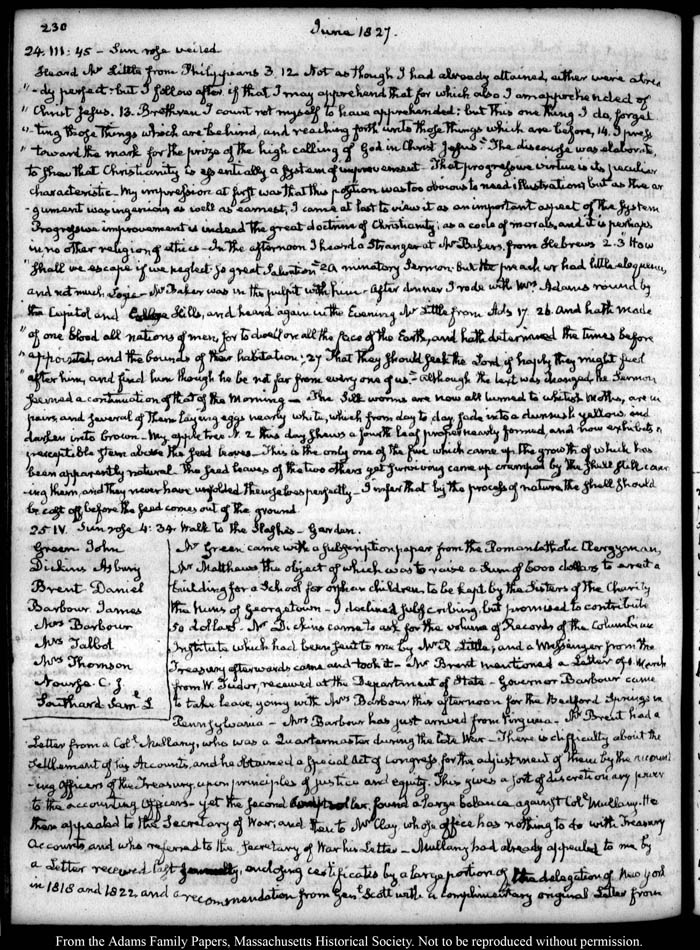 230
June 1827.
24. III: 45 - Sun rose veiled
Heard Mr Little from Philippeans 3. 12. Not as though I had already attained, either were alrea
"-dy perfect: but I follow after if that I may apprehend that for which also I am apprehended of
"Christ Jesus. 13. Brethren I count not myself to have apprehended: but this one thing I do, forget
"-ting those things which are behind, and reaching forth unto those things which are before, 14. I press
"toward the mark for the prize of the high calling of God in Christ Jesus" The discourse was elaborate,
to shew that Christianity is essentially a system of improvement - That progressive virtue is its peculiar
characteristic - My impression at first was that this position was too obvious to need illustration; but as the ar
-gument was ingenious as well as earnest, I came at last to view it as an important aspect of the System
Progressive improvement is indeed the great doctrine of Christianity; as a code of morals, and it is perhaps
in no other religion of ethics - In the afternoon I heard a Stranger at Mr Baker's, from Hebrews 2. 3 How
"shall we escape if we neglect so great Salvation" A minatory Sermon: but the preacher had little eloquence,
and not much Mr Baker was in the pulpit with him - After dinner I rode with Mrs Adams round by
the Capitol and College Hills, and heard again in the Evening Mr Little from Acts 17. 26. And hath made
"of one blood all nations of men, for to dwell on all the face of the Earth, and hath determined the times before
"appointed, and the bounds of their habitation: 27 That they should seek the Lord, if haply they might feel
"after him, and find him though he be not far from every one of us" - although the text was changed, the Sermon
seemed a continuation of that of the Morning - The Silk worms are now all turned to whitish Moths, are in
pairs, and several of them laying eggs nearly white, which from day to day fade into a dunnish yellow, and
darken into brown - My apple tree N. 2 this day shews a fourth leaf proper nearly formed, and now exhibits a
perceptible stem above the seed leaves - This is the only one of the five which came up, the growth of which has
been apparently natural. The seed leaves of the two others yet surviving came up cramped by the shell still cover
-ing them, and they never have unfolded themselves perfectly - I infer that by the process of nature the shell should
be cast off before the seed comes out of the ground
25. IV. Sun rose 4: 34. Walk to the - Garden.
Green John
Dickins Asbury
Brent Daniel
Barbour James
Mrs Barbour
Mrs Talbot
Mrs Thomson
Nourse C. J.
Southard Saml L
Mr Green came with a subscription paper from the Roman Catholic Clergyman,
Mr Matthews the object of which was to raise a sum of 6000 dollars to erect a
building for a School for orphan children, to be kept by the Sisters of the Charity
the nuns of Georgetown - I declined subscribing, but promised to contribute
50 dollars. Mr Dickins came to ask for the volume of Records of the Columbian
Institute which had been sent to me by Mr R. Little; and a Messenger from the
Treasury afterwards came and took it - Mr Brent mentioned a Letter of March
from W. Tudor, received at the Department of State - Governor Barbour came
to take leave, going with Mrs Barbour this afternoon for the Bedford Springs in
Pennsylvania - Mrs Barbour has just arrived from Virginia - Mr Brent had a
Letter from a Coll Mullany, who was a Quartermaster during the late War - There is difficulty about the
Settlement of his Accounts, and he obtained a special Act of Congress for the adjustment of them by the account
-ing Officers of the Treasury, upon principles of justice and equity. This gives a sort of discretionary power
to the accounting Officers - yet the Second Comptroller, found a large balance against Coll Mullany. He
then appealed to the Secretary of War; and then to Mr Clay whose office has nothing to do with Treasury
Accounts, and who referred to the Secretary of War his Letter - Mullany had already appealed to me by
a Letter received last enclosing certificates by a large portion of the delegation of New York
in 1818 and 1822, and a recommendation from Genl Scott with a complimentary original Letter from
From the Adams Family Papers, Massachusetts Historical Society. Not to be reproduced without permission.